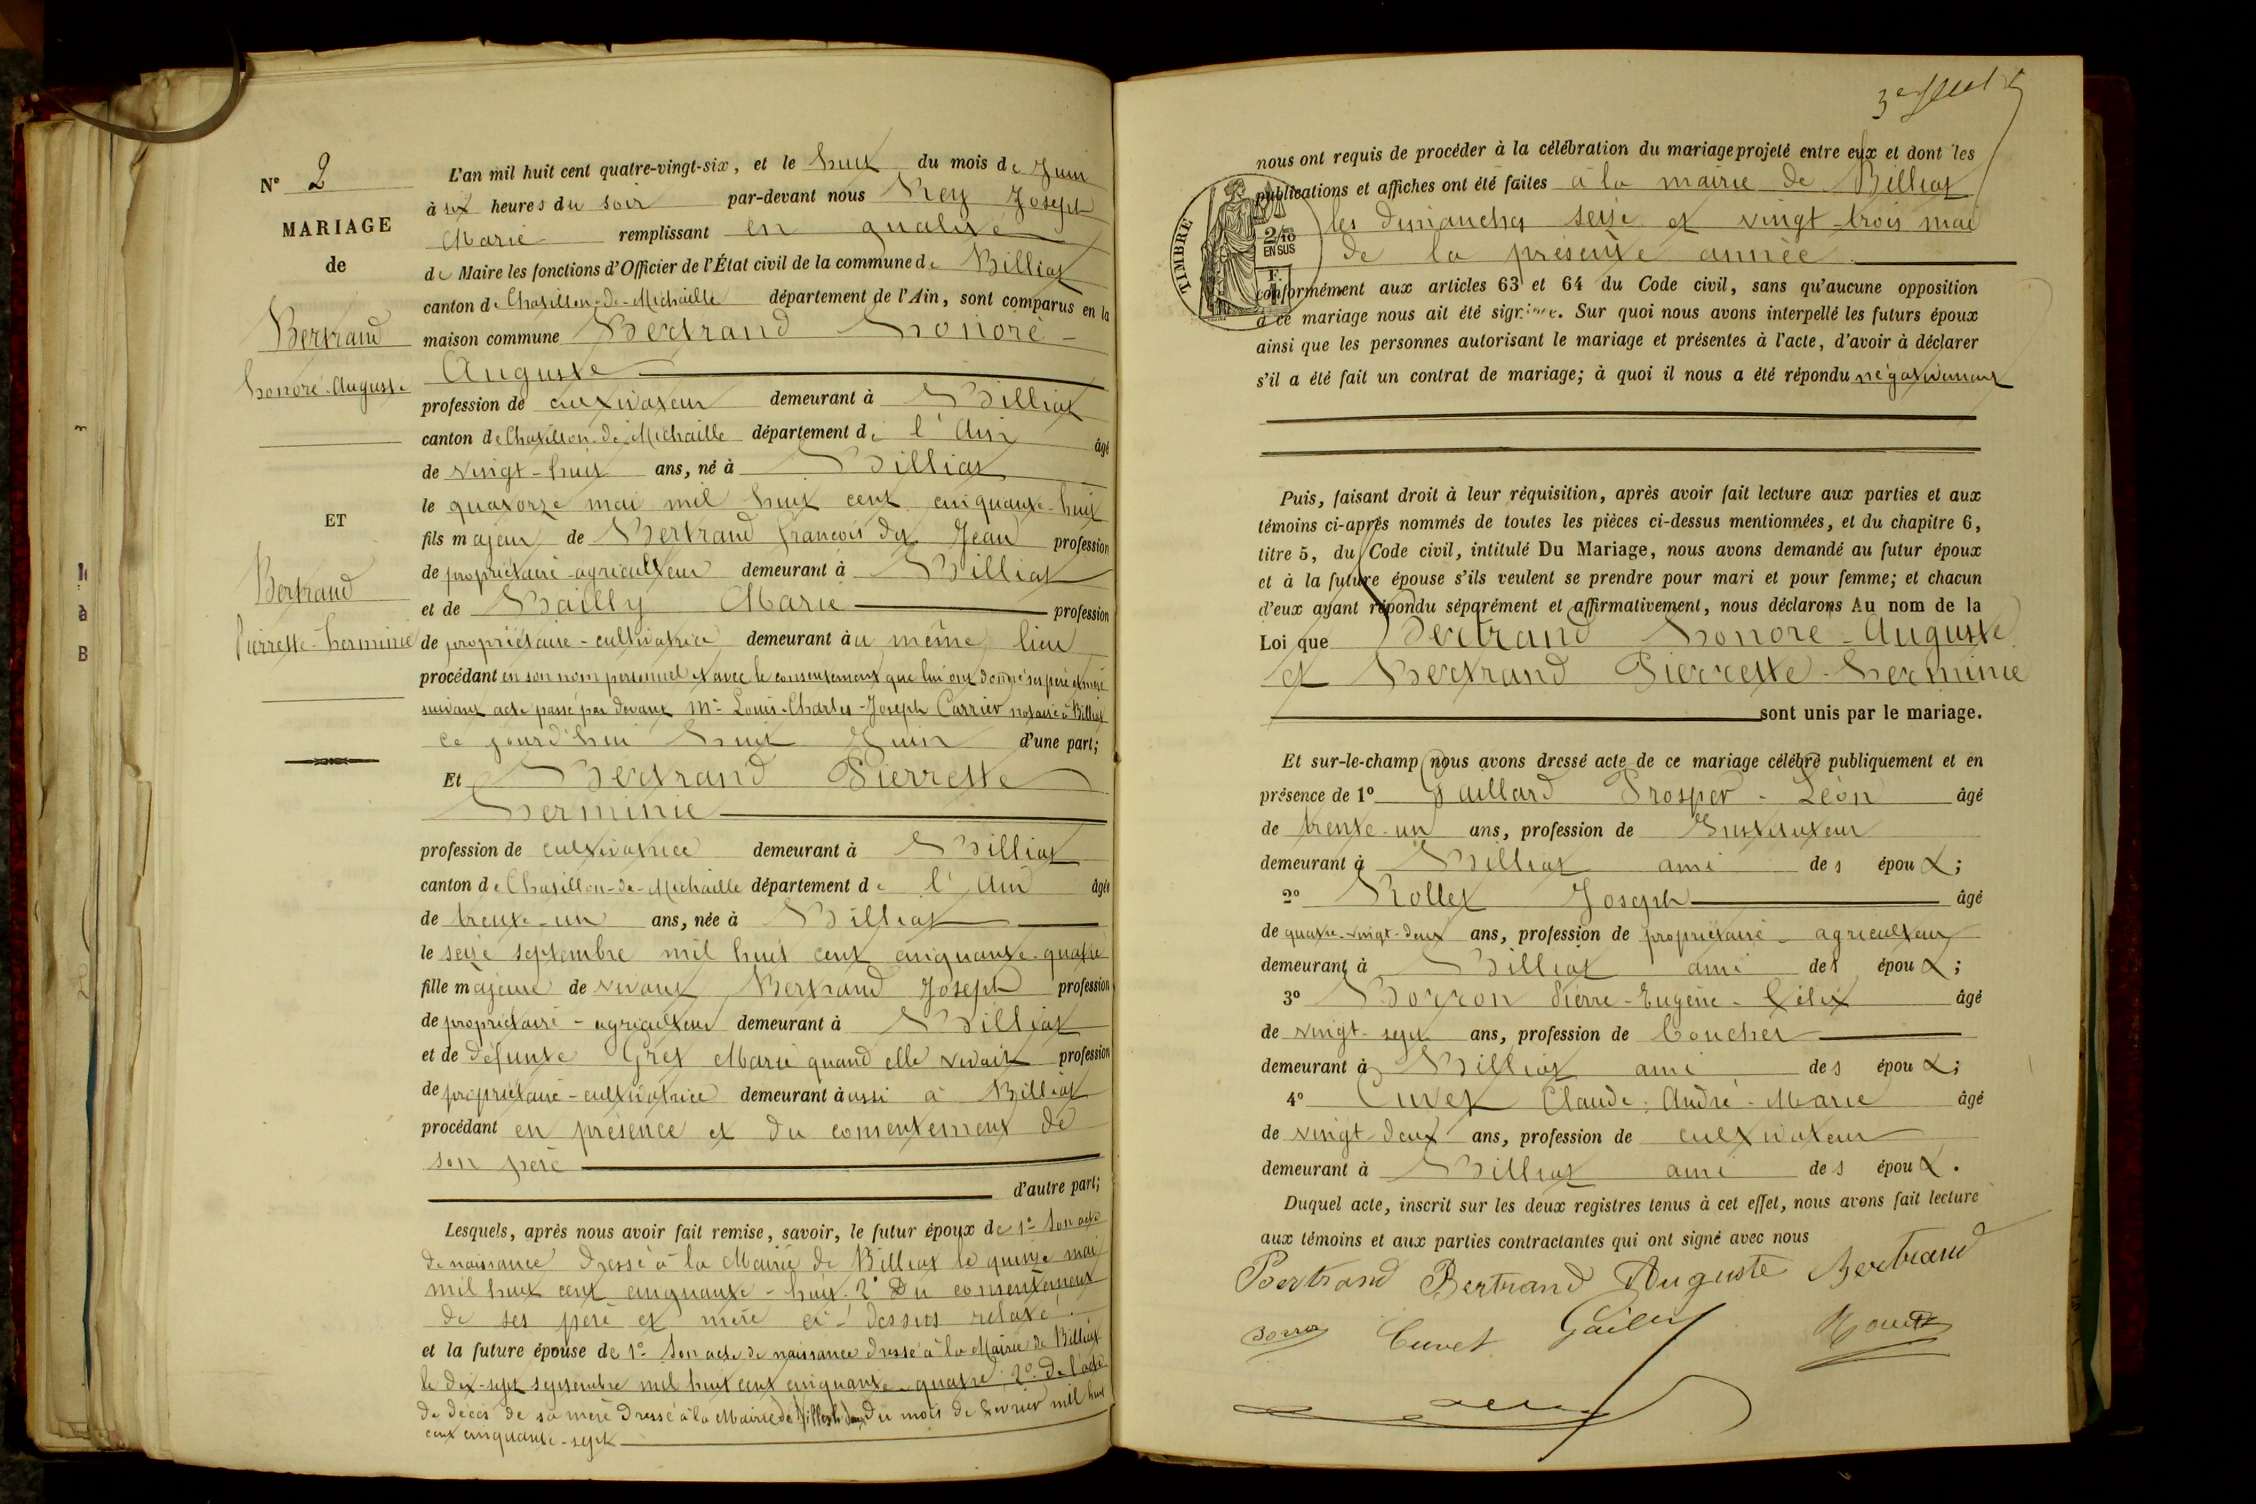 N° 2
MARIAGE
de
Bertrand
honoré-Auguste
ET
Bertrand
Pierrette-herminie
L'an mil huit cent quatre-vingt-six, et le huit du mois de Juin
à six heures du soir par-devant nous Rey Joseph
Marie remplissant en qualité
de Maire les fonctions d'Officier de l'État civil de la commune de Billiat
canton de Chatillon-de-Michaille département de l'Ain, sont comparus en la
maison commune Bertrand honoré
Auguste
profession de cultivateur demeurant à Billiat
canton de Chatillon-de-Michaille département de l'Ain âgé
de vingt-huit ans, né à Billiat
le quatorze mai mil huit cent cinquante-huit
fils majeur de Bertrand françois dit Jean profession
de propriétaire-agriculteur demeurant à Billiat
et de Bailly Marie profession
de propriétaire-cultivatrice demeurant au même lieu
procédant en son nom personnel et avec le consentement que lui ont donné ses père et mère
suivant acte passé par devant Me Louis-Charles-Joseph Carrier notaire à Billiat
ce jourd'hui huit Juin d'une part;
Et Bertrand Pierrette
herminie
profession de cultivatrice demeurant à Billiat
canton de Chatillon-de-Michaille département de l'Ain âgée
de trente-un ans, née à Billiat
le seize septembre mil huit cent cinquante-quatre
fille majeure de vivant Bertrand Joseph profession
de propriétaire-agriculteur demeurant à Billiat
et de défunte Gret Marie quand elle vivait profession
de propriétaire-cultivatrice demeurant aussi à Billiat
procédant en présence et du consentement de
son père
d'autre part;
Lesquels, après nous avoir fait remise, savoir, le futur époux de 1° Son acte
de naissance dressé à la Mairie de Billiat le quinze mai
mil huit cent cinquante-huit. 2° Du consentement
de ses père et mère ci-dessus relaté.
et la future épouse de 1° Son acte de naissance dressé à la Mairie de Billiat
le dix-sept septembre mil huit cent cinquante-quatre. 2° De l'acte
de décès de sa mère dressé à la Mairie de Billiat le deux du mois de février mil huit
cent cinquante-sept
3e
TIMBRE
2/10
EN SUS
F.
nous ont requis de procéder à la célébration du mariage projeté entre eux et dont les
publications et affiches ont été faites à la mairie de Billiat
les dimanches seize et vingt-trois mai
de la présente année
conformément aux articles 63 et 64 du Code civil, sans qu'aucune opposition
à ce mariage nous ait été signifiée. Sur quoi nous avons interpellé les futurs époux
ainsi que les personnes autorisant le mariage et présentes à l'acte, d'avoir à déclarer
s'il a été fait un contrat de mariage; à quoi il nous a été répondu négativement
Puis, faisant droit à leur réquisition, après avoir fait lecture aux parties et aux
témoins ci-après nommés de toutes les pièces ci-dessus mentionnées, et du chapitre 6,
titre 5, du Code civil, intitulé Du Mariage, nous avons demandé au futur époux
et à la future épouse s'ils veulent se prendre pour mari et pour femme; et chacun
d'eux ayant répondu séparément et affirmativement, nous déclarons Au nom de la
Loi que Bertrand honoré-Auguste
et Bertrand Pierrette-herminie
sont unis par le mariage.
Et sur-le-champ nous avons dressé acte de ce mariage célébré publiquement et en
présence de 1° Gaillard Prosper-Léon âgé
de trente-un ans, profession de Instituteur
demeurant à Billiat ami des époux;
2° Rollet Joseph âgé
de quatre-vingt-deux ans, profession de propriétaire-agriculteur
demeurant à Billiat ami des époux;
3° Borron Pierre-Eugène-félix âgé
de vingt-sept ans, profession de Boucher
demeurant à Billiat ami des époux;
4° Cuvet Claude-André-Marie âgé
de vingt-deux ans, profession de cultivateur
demeurant à Billiat ami des époux.
Duquel acte, inscrit sur les deux registres tenus à cet effet, nous avons fait lecture
aux témoins et aux parties contractantes qui ont signé avec nous
Bertrand Bertrand Auguste Bertrand
Borron Cuvet